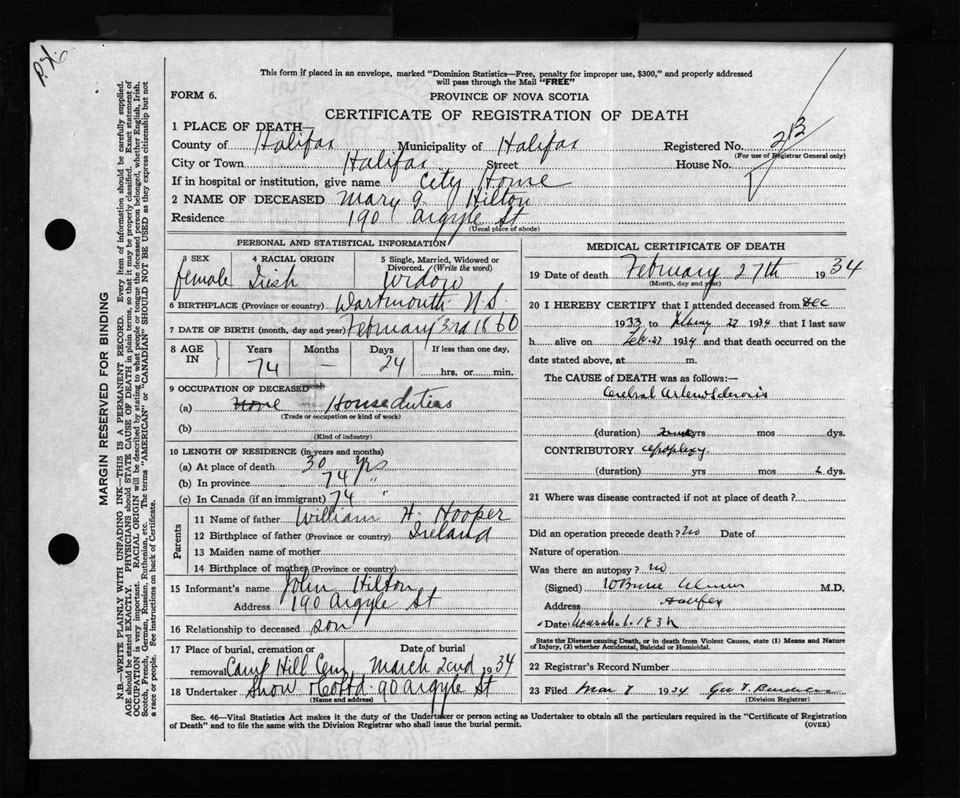 P.X.6
This form if placed in an envelope, marked "Dominion Statistics—Free, penalty for improper use, $300," and properly addressed
will pass through the Mail "FREE"
FORM 6.
PROVINCE OF NOVA SCOTIA
CERTIFICATE OF REGISTRATION OF DEATH
1 PLACE OF DEATH—
County of Halifax Municipality of Halifax Registered No. 213
(For use of Registrar General only)
City or Town Halifax Street House No.
If in hospital or institution, give name City Home
2 NAME OF DECEASED Mary J. Hilton
Residence 190 Argyle St
(Usual place of abode)
PERSONAL AND STATISTICAL INFORMATION
3 SEX 4 RACIAL ORIGIN 5 Single, Married, Widowed or
Divorced. (Write the word)
female Irish Widow
6 BIRTHPLACE (Province or country) Dartmouth N.S.
7 DATE OF BIRTH (month, day and year) February 3rd 1860
8 AGE IN Years Months Days If less than one day,
74 — 24 hrs. or min.
9 OCCUPATION OF DECEASED
(a) None House duties
(Trade or occupation or kind of work)
(b)
(Kind of industry)
10 LENGTH OF RESIDENCE (in years and months)
(a) At place of death 30 yrs
(b) In province 74 "
(c) In Canada (if an immigrant) 74 "
Parents
11 Name of father William H. Hooper
12 Birthplace of father (Province or country) Ireland
13 Maiden name of mother
14 Birthplace of mother (Province or country)
15 Informant's name John Hilton
Address 190 Argyle St
16 Relationship to deceased son
17 Place of burial, cremation or Date of burial
removal Camp Hill Cem March 2nd 1934
18 Undertaker Snow & Co Ltd. 90 Argyle St
(Name and address)
MEDICAL CERTIFICATE OF DEATH
19 Date of death February 27th 1934
(Month, day and year)
20 I HEREBY CERTIFY that I attended deceased from Dec
1933 to 27 1934 that I last saw
h alive on Feb. 27 1934 and that death occurred on the
date stated above, at m.
The CAUSE of DEATH was as follows:—
Cerebral Arteriosclerosis
(duration) yrs mos dys.
CONTRIBUTORY apoplexy
(duration) yrs mos 2 dys.
21 Where was disease contracted if not at place of death?
Did an operation precede death? no Date of
Nature of operation
Was there an autopsy? no
(Signed) W Bruce Almon M.D.
Address Halifax
Date March 1. 1934
State the Disease causing Death, or in death from Violent Causes, state (1) Means and Nature
of Injury, (2) whether Accidental, Suicidal or Homicidal.
22 Registrar's Record Number
23 Filed Mar 8 1934 Geo T.
(Division Registrar)
Sec. 46—Vital Statistics Act makes it the duty of the Undertaker or person acting as Undertaker to obtain all the particulars required in the "Certificate of Registration
of Death" and to file the same with the Division Registrar who shall issue the burial permit. (OVER)
MARGIN RESERVED FOR BINDING
N.B.—WRITE PLAINLY WITH UNFADING INK—THIS IS A PERMANENT RECORD. Every item of information should be carefully supplied.
AGE should be stated EXACTLY. PHYSICIANS should STATE CAUSE OF DEATH in plain terms, so that it may be properly classified. Exact statement of
OCCUPATION is very important. RACIAL ORIGIN will be described by stating to what people or tongue the deceased person belonged, whether English, Irish,
Scotch, French, German, Russian, Ruthenian, etc. The terms "AMERICAN" or "CANADIAN" SHOULD NOT BE USED as they express citizenship but not
a race or people. See instructions on back of Certificate.